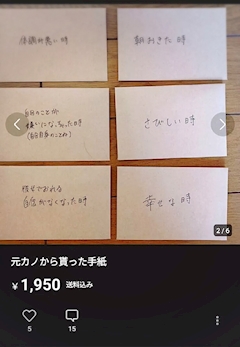 体調が悪い時
朝おきた時
自分のことが
嫌いになっちゃった時
さびしい時
自信がなくなった時
幸せな時
2/6
元カノから貰った手紙
¥1,950 送料込み
5
15